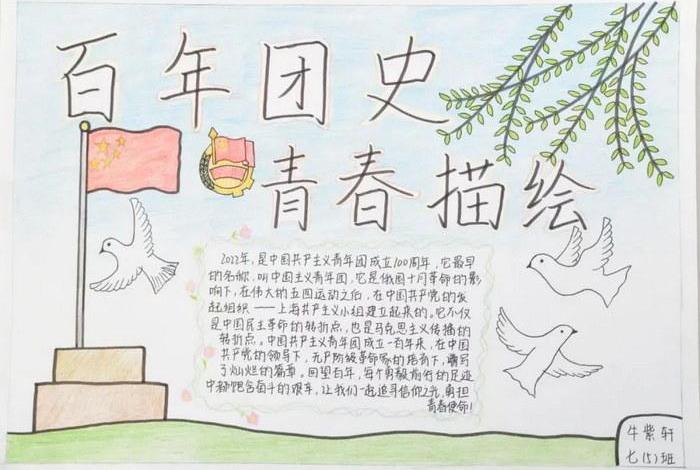 百年团史
青春描绘
2022年,是中国共产主义青年团成立100周年,它最早
的名称,叫中国主义青年团,它是俄国十月革命的影
响下,在伟大的五四运动之后,在中国共产党的发
起组织——上海共产主义小组建立起来的。它不仅
是中国民主革命的转折点,也是马克思主义传播的
转折点。中国共产主义青年团成立一百年来,在中国
共产党的领导下,无产阶级革命家的培育下,谱写
了灿烂的篇章。回望百年,每个勇毅前行的足迹
中都饱含奋斗的艰辛,让我们一起追寻信仰之光,勇担
青春使命!
牛紫轩
七(5)班